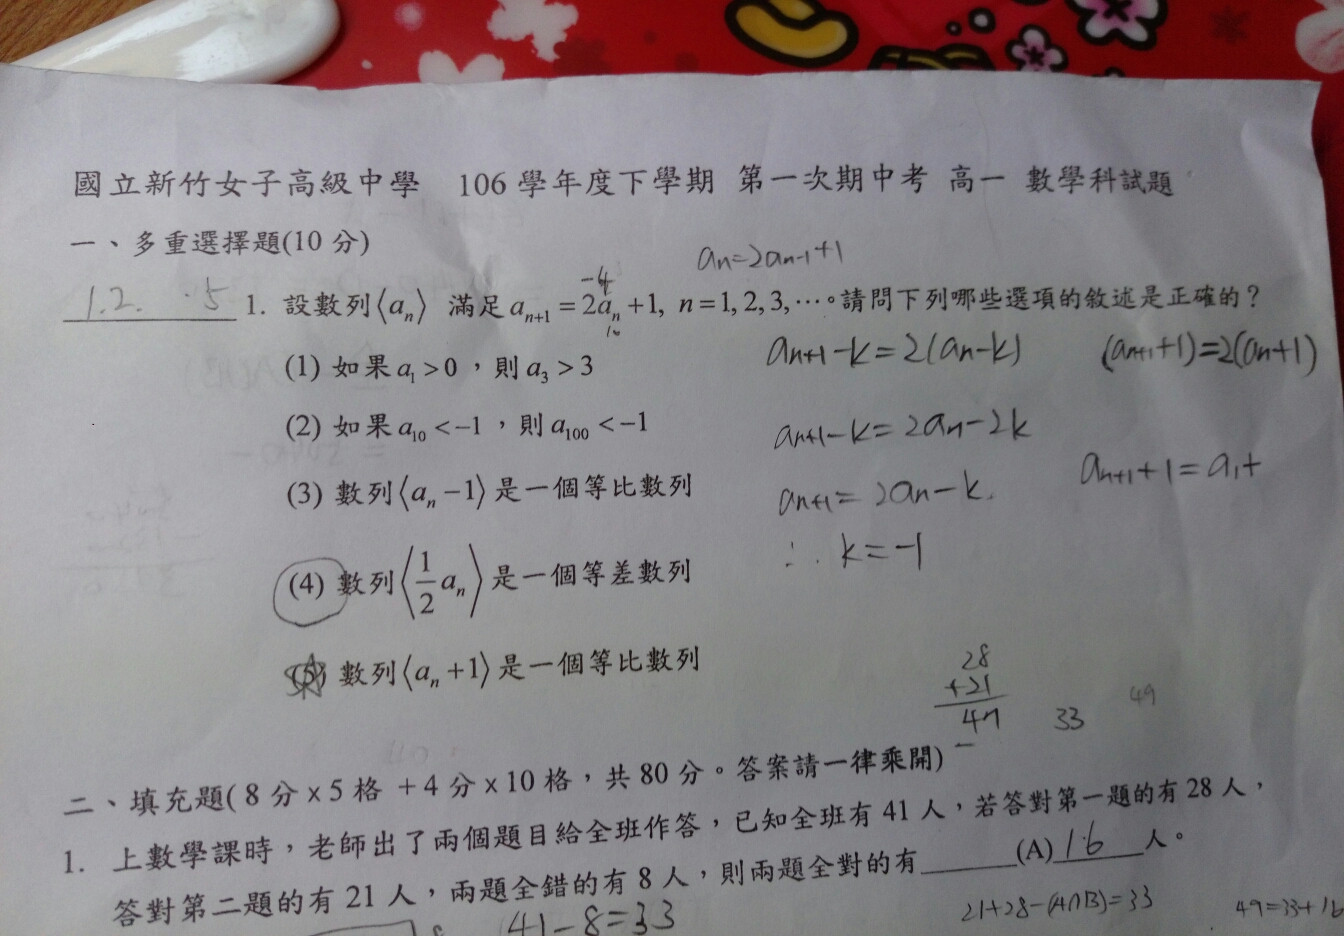 國立新竹女子高級中學 106 學年度下學期 第一次期中考 高一 數學科試題
一、多重選擇題(10 分)
aₙ=2aₙ₋₁+1
-4
1.2. .5 1. 設數列⟨aₙ⟩ 滿足 aₙ₊₁ = 2aₙ +1, n = 1, 2, 3, ⋯。請問下列哪些選項的敘述是正確的？
10
(1) 如果 a₁ > 0，則 a₃ > 3
aₙ₊₁-k=2(aₙ-k) (aₙ₊₁+1)=2(aₙ+1)
(2) 如果 a₁₀ < -1，則 a₁₀₀ < -1
aₙ₊₁-k=2aₙ-2k
aₙ₊₁+1=a₁+
(3) 數列⟨aₙ -1⟩是一個等比數列
aₙ₊₁=2aₙ-k.
∴ k=-1
(4) 數列⟨1/2 aₙ⟩是一個等差數列
(5) 數列⟨aₙ +1⟩是一個等比數列
28
+21
49
33
49
二、填充題( 8 分 x 5 格 + 4 分 x 10 格，共 80 分。答案請一律乘開)
1. 上數學課時，老師出了兩個題目給全班作答，已知全班有 41 人，若答對第一題的有 28 人，
答對第二題的有 21 人，兩題全錯的有 8 人，則兩題全對的有______(A) 16 人。
41-8=33
21+28-(A∩B)=33
49=33+16